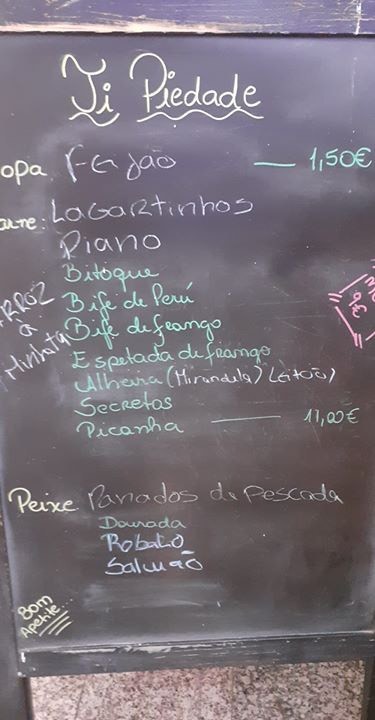 Ti Piedade
opa Feijão — 1,50€
arne: Lagartinhos
Piano
Bitoque
Bife de Perú
Bife de frango
Espetada de frango
Alheira (Mirandela) Leitão)
Secretos
Picanha — 11,00€
RROZ
à
Minhota
Peixe Panados de Pescada
Dourada
Robalo
Salmão
Bom
Apetite